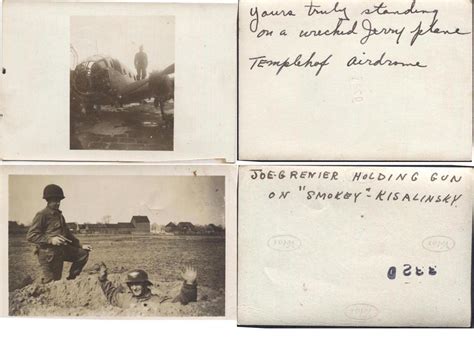 Yours truly standing
on a wrecked Jerry plane
Templehof Airdrome
JOE-GRENIER HOLDING GUN
ON "SMOKEY"-KISALINSKY.
Velox
Velox
Velox